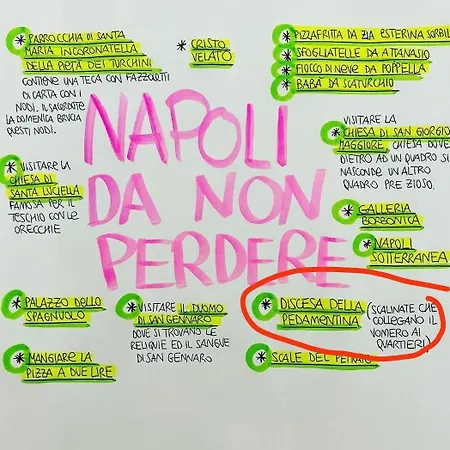 * PARROCCHIA DI SANTA
MARIA INCORONATELLA
DELLA PIETÀ DEI TURCHINI
CONTIENE UNA TECA CON FAZZOLETTI
DI CARTA CON I
NODI. IL SACERDOTE
LA DOMENICA BRUCIA
QUESTI NODI.
* CRISTO
VELATO
* PIZZA FRITTA DA ZIA ESTERINA SORBIL
* SFOGLIATELLE DA ATTANASIO
* FIOCCO DI NEVE DA POPPELLA
* BABÀ DA SCATURCHIO
NAPOLI
DA NON
PERDERE
VISITARE LA
* CHIESA DI SAN GIORGIO
MAGGIORE, CHIESA DOVE
DIETRO AD UN QUADRO SI
NASCONDE UN ALTRO
QUADRO PREZIOSO.
* VISITARE LA
CHIESA DI
SANTA LUCIELLA
FAMOSA PER IL
TESCHIO CON LE
ORECCHIE
* GALLERIA
BORBONICA
* NAPOLI
SOTTERRANEA
* PALAZZO DELLO
SPAGNUOLO
* VISITARE IL DUOMO
DI SAN GENNARO
DOVE SI TROVANO LE
RELIQUIE ED IL SANGUE
DI SAN GENNARO
* DISCESA DELLA
PEDAMENTINA
(SCALINATE CHE
COLLEGANO IL
VOMERO AI
QUARTIERI)
* MANGIARE LA
PIZZA A DUE LIRE
* SCALE DEL PETRAIO